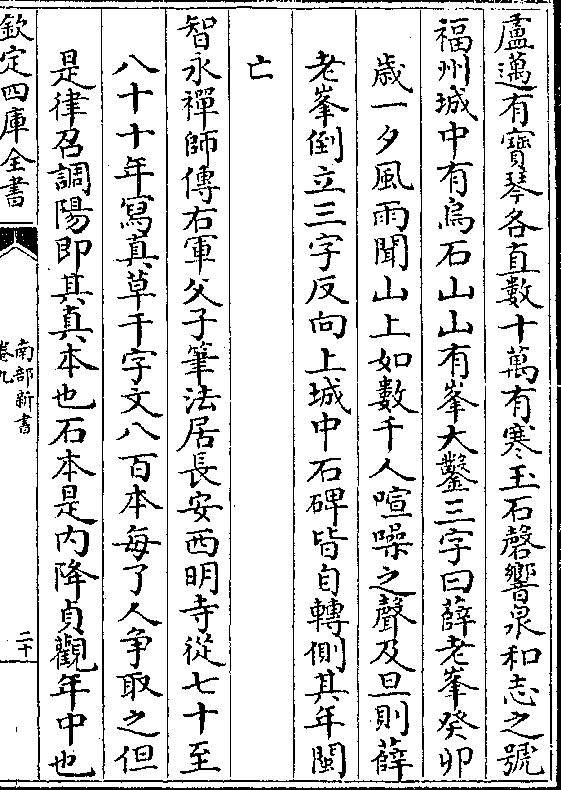 盧邁有寳琴各直數十萬有寒玉石磬響泉和志之號
福州城中有烏石山山有峯大鑿三字曰薛老峯癸卯
歳一夕風雨聞山上如數千人喧噪之聲及旦則薛
老峯倒立三字反向上城中石碑皆自轉側其年閩
亡
智永禪師傳右軍父子筆法居長安西明寺從七十至
八十十年寫真草千字文八百本毎了人争取之但
是律召調陽即其真本也石本是内降貞觀年中也
欽定四庫全書
南部新書
卷九
二十